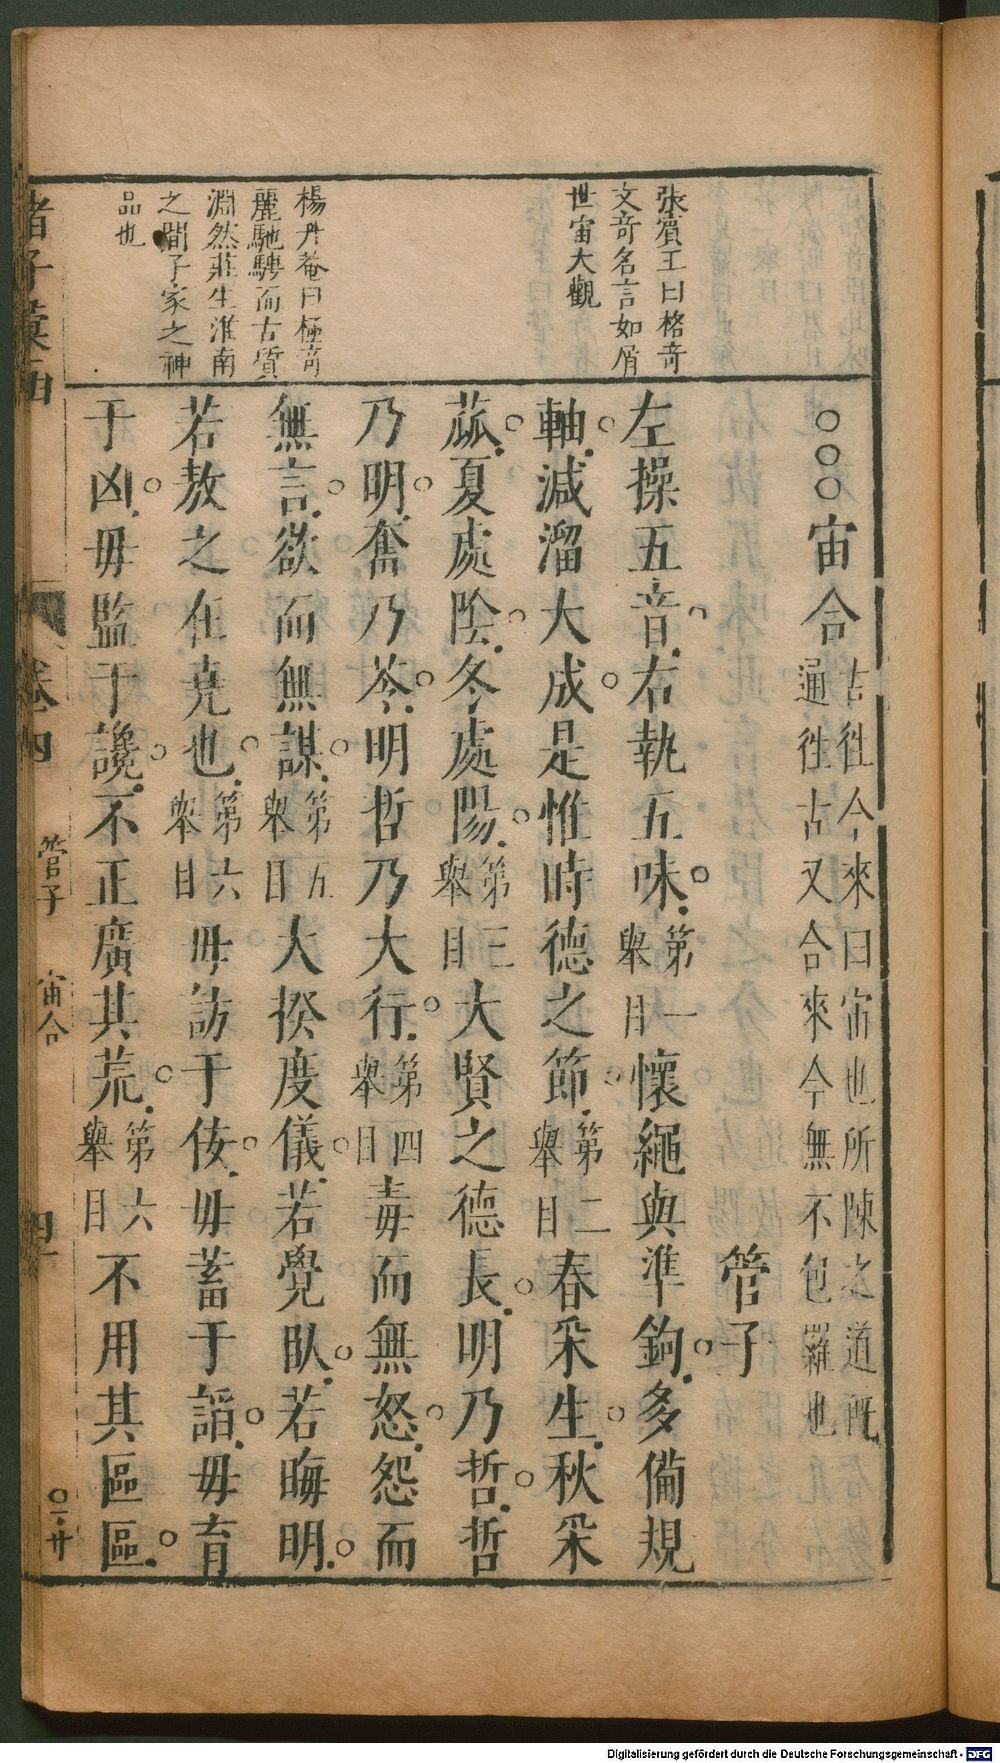 張賓王曰格奇
文奇名言如屑
世宙大觀
楊升菴曰極奇
麗馳騁而古質
淵然莊生淮南
之間子家之神
品也
○○○宙合
古徃今來曰宙也所陳之道既
通徃古又合來今無不包羅也
管子
左操五音右執五味第一舉目懷繩與準鉤多備規
軸減溜大成是惟時德之節第二舉目春采生秋采
蓏夏處陰冬處陽第三舉目大賢之德長明乃哲哲
乃明奮乃苓明哲乃大行第四舉目毒而無怒怨而
無言欲而無謀第五舉目大揆度儀若覺臥若晦明
若敖之在堯也第六舉目毋訪于佞毋蓄于謟毋育
于凶毋監于讒不正廣其荒第六舉目不用其區區
諸子彙函
卷四
管子
宙合
Digitalisierung gefördert durch die Deutsche Forschungsgemeinschaft - DFG